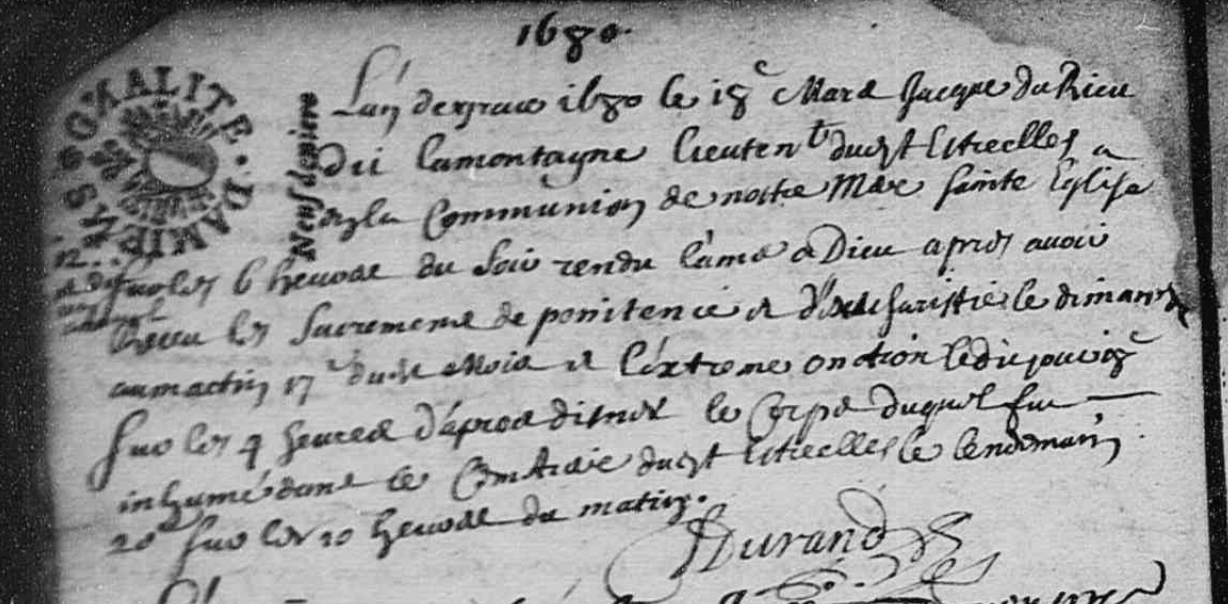 1680.
GENERALITE. DAMIENS
Neuf deniers
L'an de grace 1680 le 18e Mars Jacque du Rieu
dit lamontagne lieutent dudt Estreelles a
de la Communion de nostre Mere sainte Eglise
sur les 6 heures du soir rendu l'ame a Dieu apres avoir
Receu les sacremens de penitence et d'
le dimanche
au matin 17e dudt Mois et l'extreme onction ledit jour
sur les 4 heures d'apres disner le Corps duquel fut
inhumé dans le Cimetiere dudt Estreelles le lendemain
20e sur les 10 heures du matin.
Durand